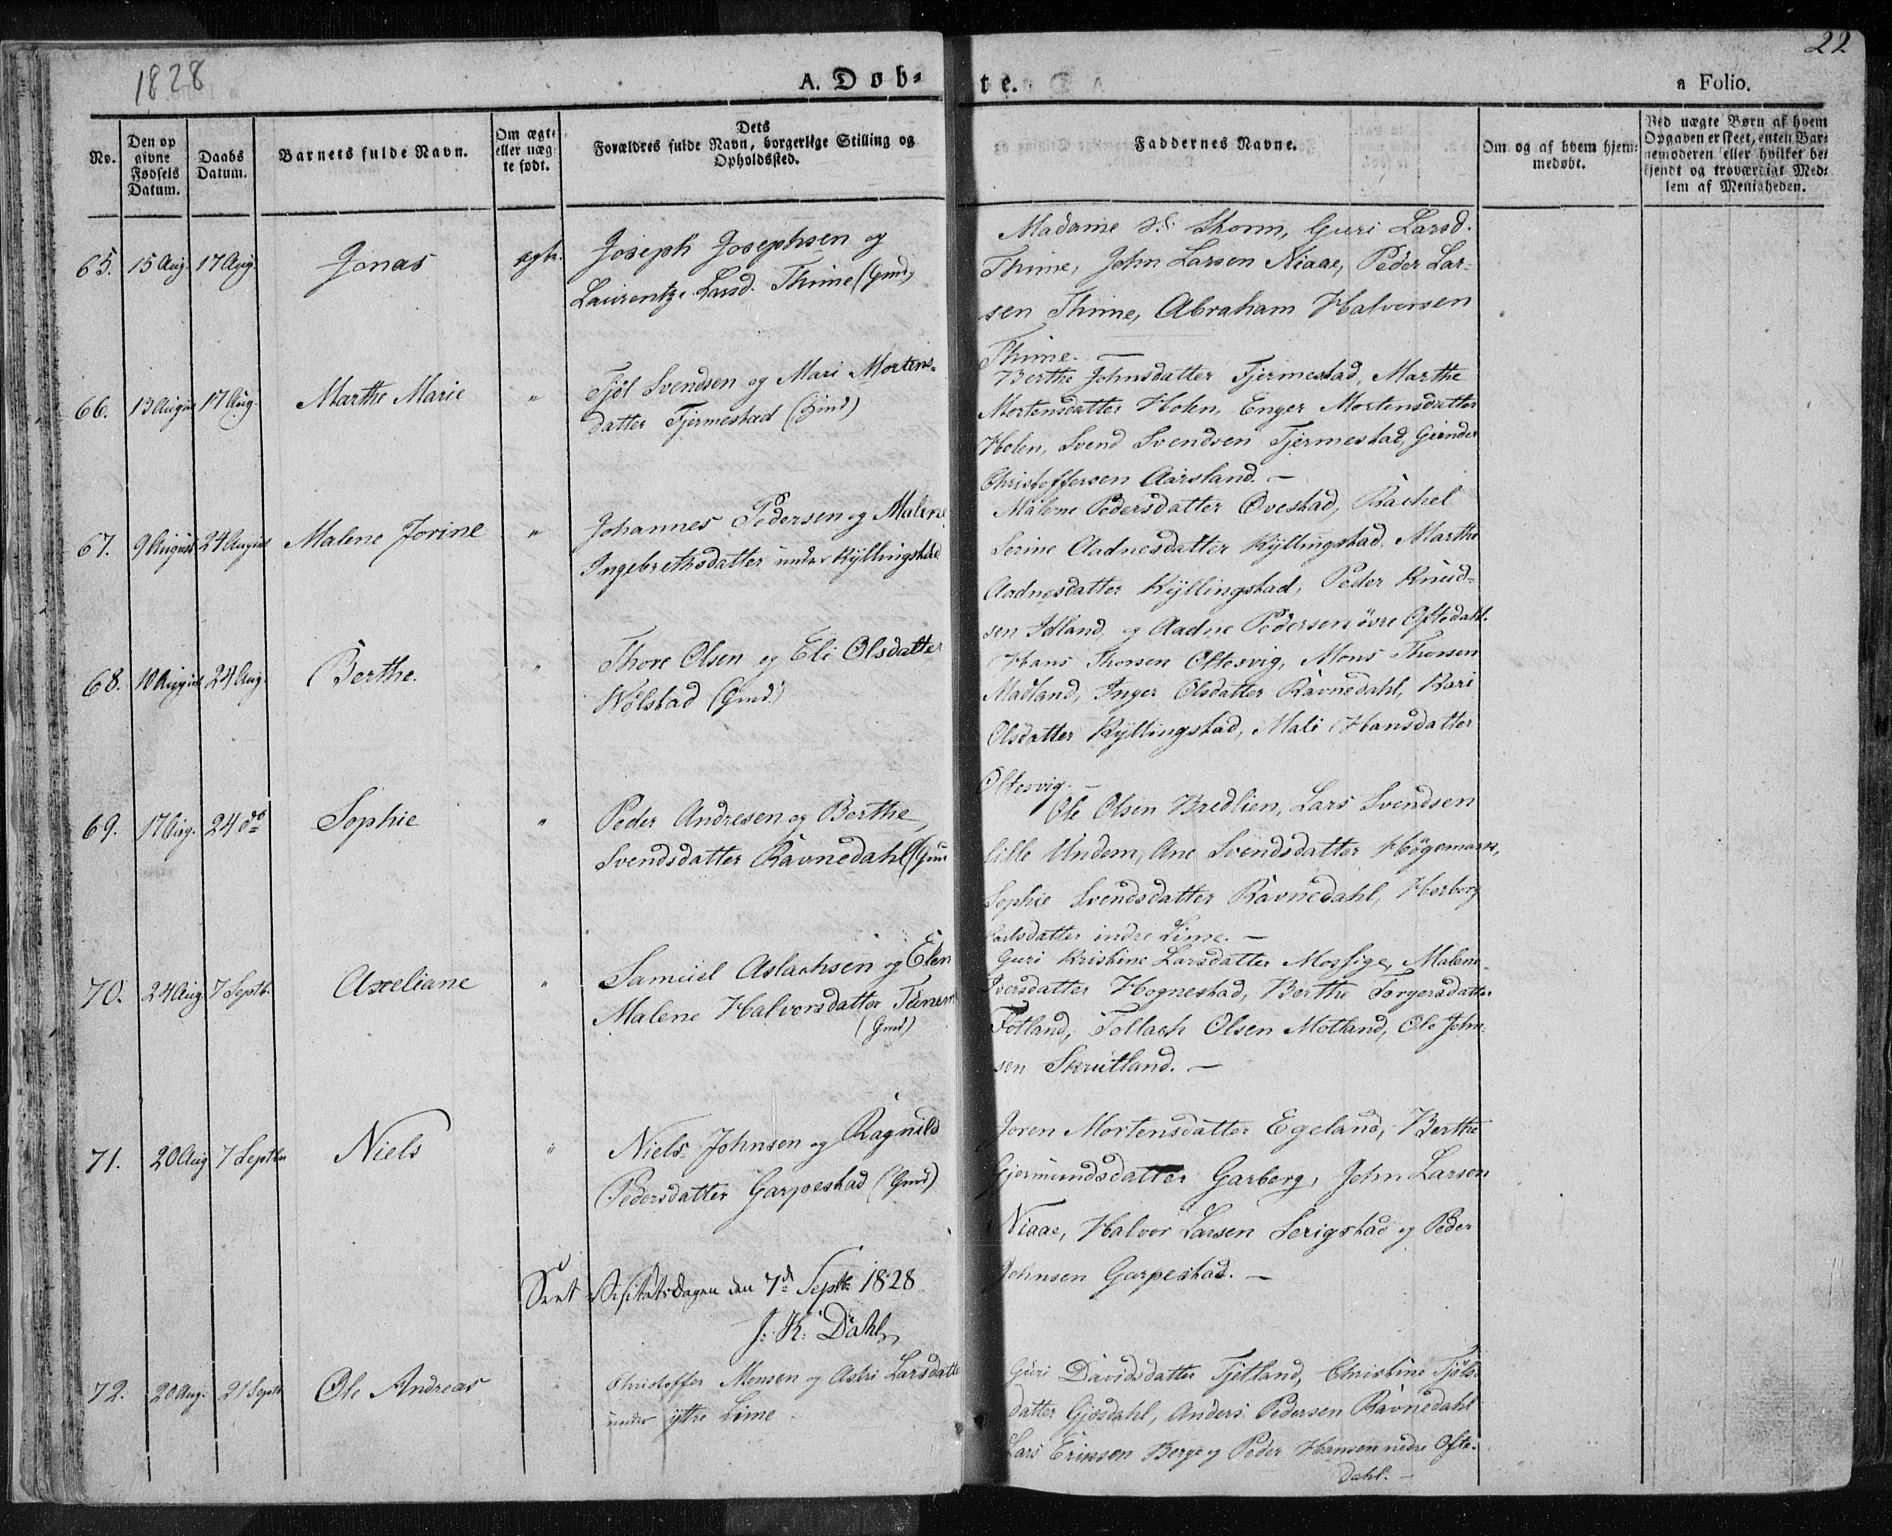 1828
22
A. Døb-
te.
a Folio.
No.
Den op
givne
Fødsels
Datum.
Daabs
Datum.
Barnets fulde Navn.
Om ægte
eller uæg-
te født.
Dets
Forældres fulde Navn, borgerlige Stilling og
Opholdssted.
Faddernes Navne.
Om og af hvem hjem-
medøbt.
Ved uægte Børn af hvem
Opgaven er skeet, enten Bar-
nemoderen eller hvilket be-
kjendt og troværdigt Med-
lem af Menigheden.
65. 15 Aug. 17 Aug. Jonas ægte.
Joseph Josephsen og
Laurentze Larsd. Thime (Gmd)
Madame Skonn, Guri Larsd.
Thime, John Larsen Niaae, Peder Lar-
sen Thime, Abraham Halvorsen
Thime. —
66. 13 August 17 Aug. Marthe Marie "
Tjøl Svendsen og Mari Mortens-
datter Tjermestad (Gmd)
Berthe Johnsdatter Tjermestad, Marthe
Mortensdatter Holen, Enger Mortensdatter
Holen, Svend Svendsen Tjermestad, Gunder
Christoffersen Aarsland. —
67. 9 August 24 August Malene Jorine "
Johannes Pedersen og Malene
Ingebrethsdatter under Kyllingstad
Malene Pedersdatter Ovestad, Rachel
Serine Aadnesdatter Kyllingstad, Marthe
Aadnesdatter Kyllingstad, Peder Knud-
sen Idland, og Aadne Pedersen øvre Oftedahl.
68. 10 August 24 Aug. Berthe. "
Thore Olsen og Eli Olsdatter
Wølstad (Gmd.)
Hans Thorsen Oltesvig, Mons Thorsen
Madland, Inger Olsdatter Ravnedahl, Kari
Olsdatter Kyllingstad, Mali Hansdatter
Oltesvig. —
69. 17 Aug. 24 do Sophie "
Peder Andresen og Berthe
Svendsdatter Ravnedahl (Gmd
Ole Olsen Bredlien, Lars Svendsen
lille Undem, Ane Svendsdatter Høgemark,
Sophie Svendsdatter Ravnedahl, Herborg
Carlsdatter indre Lime. —
70. 24 Aug. 7 Septb. Axeliane "
Samuel Aslachsen og Elen
Malene Halvorsdatter Tunem
(Gmd)
Guri Kristine Larsdatter Mossige, Malene
Iversdatter Hognestad, Berthe Torgersdatter
Fotland, Tollach Olsen Motland, Ole John-
sen Skrutland. —
71. 20 Aug 7 Septbr Niels "
Niels Johnsen og Ragnild
Pedersdatter Garpestad (Gmd)
Joren Mortensdatter Egeland, Berthe
Gjermundsdatter Garberg, John Larsen
Niaae, Halvor Larsen Serigstad og Peder
Johnsen Garpestad. —
Seet Visitatsdagen den 7de Septbr 1828.
J. K. Dahl
72. 20 Aug. 21 Septb Ole Andreas
Christoffer Monsen og Astri Larsdatter
under ytre Lime
Guri Davidsdatter Tjetland, Christine Tjøls-
datter Gjosdahl, Anders Pedersen Ravnedahl
Lars Eriksen Berge og Peder Hansen nedre Ofte-
dahl. —